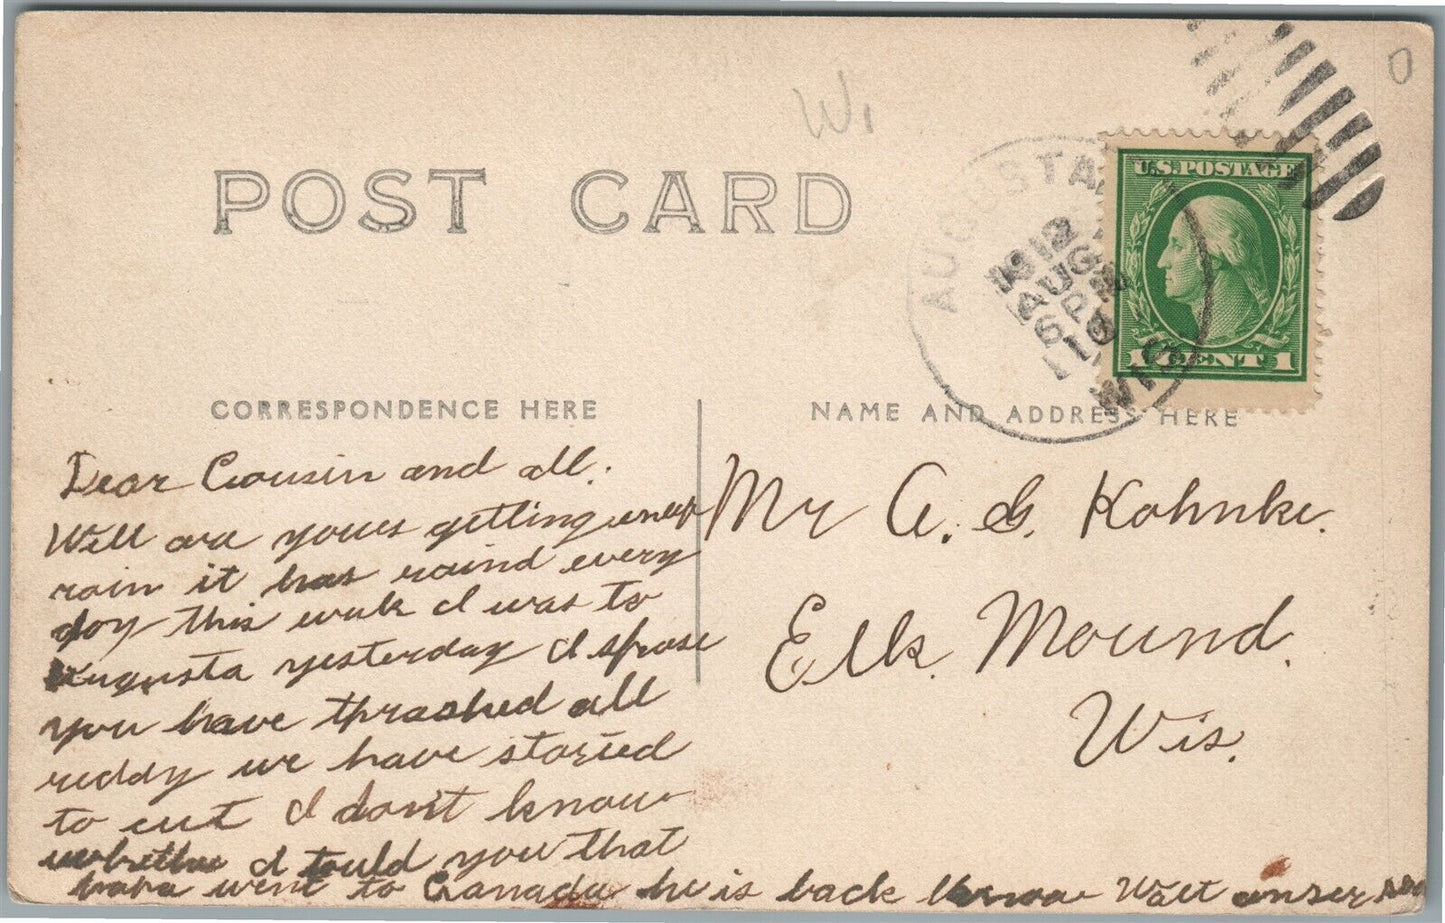 Wi
0
POST CARD
AUGUSTA
1912
AUG
6 PM
10
WIS
U.S. POSTAGE
1 CENT 1
CORRESPONDENCE HERE
NAME AND ADDRESS HERE
Dear Cousin and all.
Well are youes getting
rain it has raind every
day this weeke I was to
Augusta yesterday I spose
you have thrashed all
reddy we have storied
to cut I dont know
whethe I tould you that
went to Canada he is back Walt anser
Mr A. G. Kohnke.
Elk. Mound.
Wis.